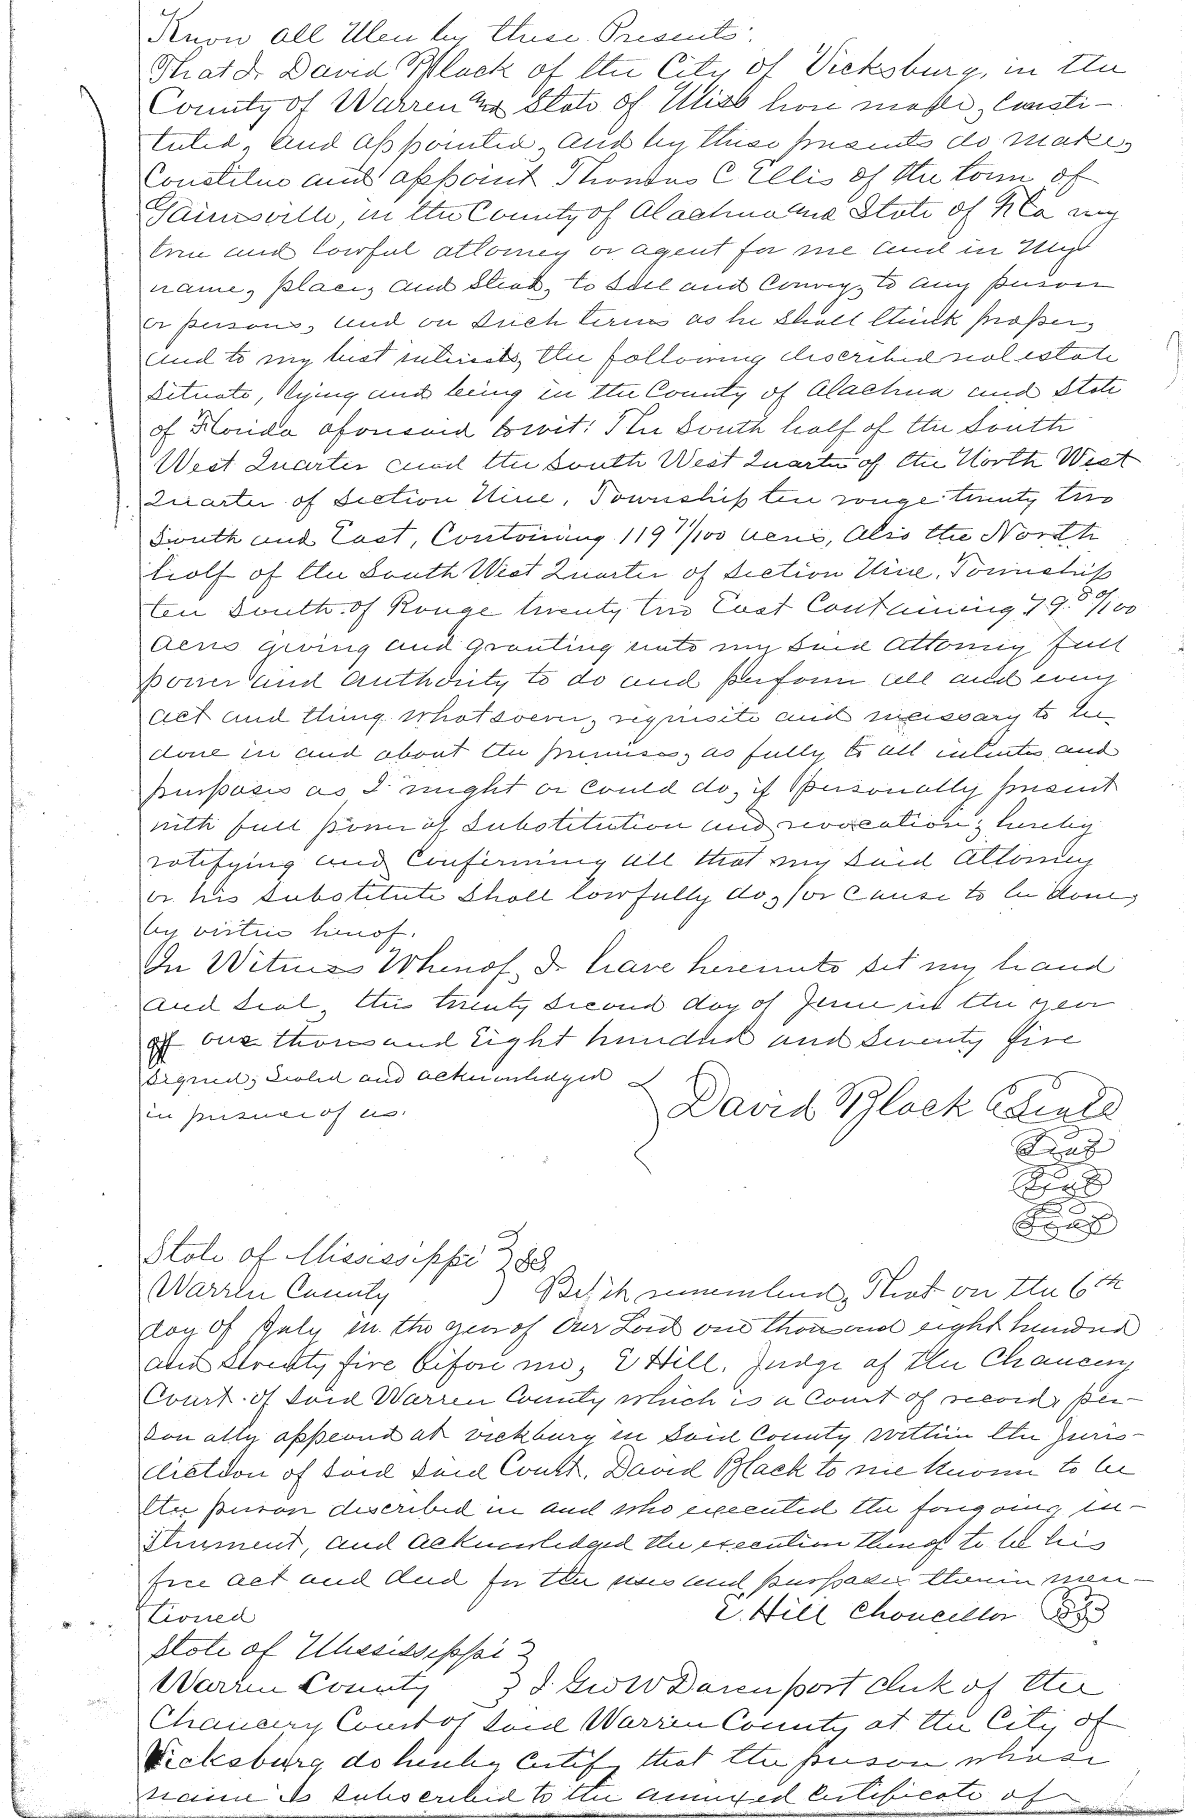 Know all Men by these Presents:
That I David Black of the City of Vicksburg, in the
County of Warren and State of Miss have made, Consti-
tuted, and appointed, and by these presents do make,
Constitue and appoint Thomas C Ellis of the town of
Gainesville, in the County of Alachua and State of Fla my
true and lawful attorney or agent for me and in my
name, place, and Stead, to Sell and Convey, to any person
or persons, and on Such terms as he Shall think proper,
and to my best interests, the following described real estate
Situate, lying and being in the County of Alachua and State
of Florida aforesaid towit: The South half of the South
West Quarter and the South West Quarter of the North West
Quarter of Section Nine, Township ten range twenty two
South and East, Containing 119 71/100 acres, Also the North
half of the South West Quarter of Section Nine, Township
ten South of Range twenty two East Containing 79. 80/100
Acres giving and granting unto my Said Attorney full
power and authority to do and perform all and every
act and thing whatsoever, requisite and necessary to be
done in and about the premises, as fully to all intents and
purposes as I might or could do, if personally present
with full power of Substitution and revocation, hereby
ratifying and Confirming all that my Said Attorney
or his Substitute Shall lawfully do, or Cause to be done,
by virtue hereof.
In Witness Whereof, I have hereunto Set my hand
and Seal, this twenty Second day of June in the year
of one thousand Eight hundred and Seventy five
Signed, Sealed and acknowledged
in presence of us.
David Black Seal
Seal
Seal
Seal
State of Mississippi SS
Warren County
Be it remembered, That on the 6th
day of July in the year of Our Lord one thousand eight hundred
and Seventy five before me, E Hill, Judge of the Chancery
Court of Said Warren County which is a Court of record, per-
sonally appeared at vickburg in Said County within the Juris-
diction of Said Said Court, David Black to me known to be
the person described in and who executed the foregoing in-
strument, and acknowledged the execution thereof to be his
free act and deed for the uses and purposes therein men-
tioned
E. Hill Chancellor
State of Mississippi
Warren County
I Geo W Davenport clerk of the
Chancery Court of Said Warren County at the City of
Vicksburg do hereby Certify that the person whose
name is Subscribed to the annexed Certificate of